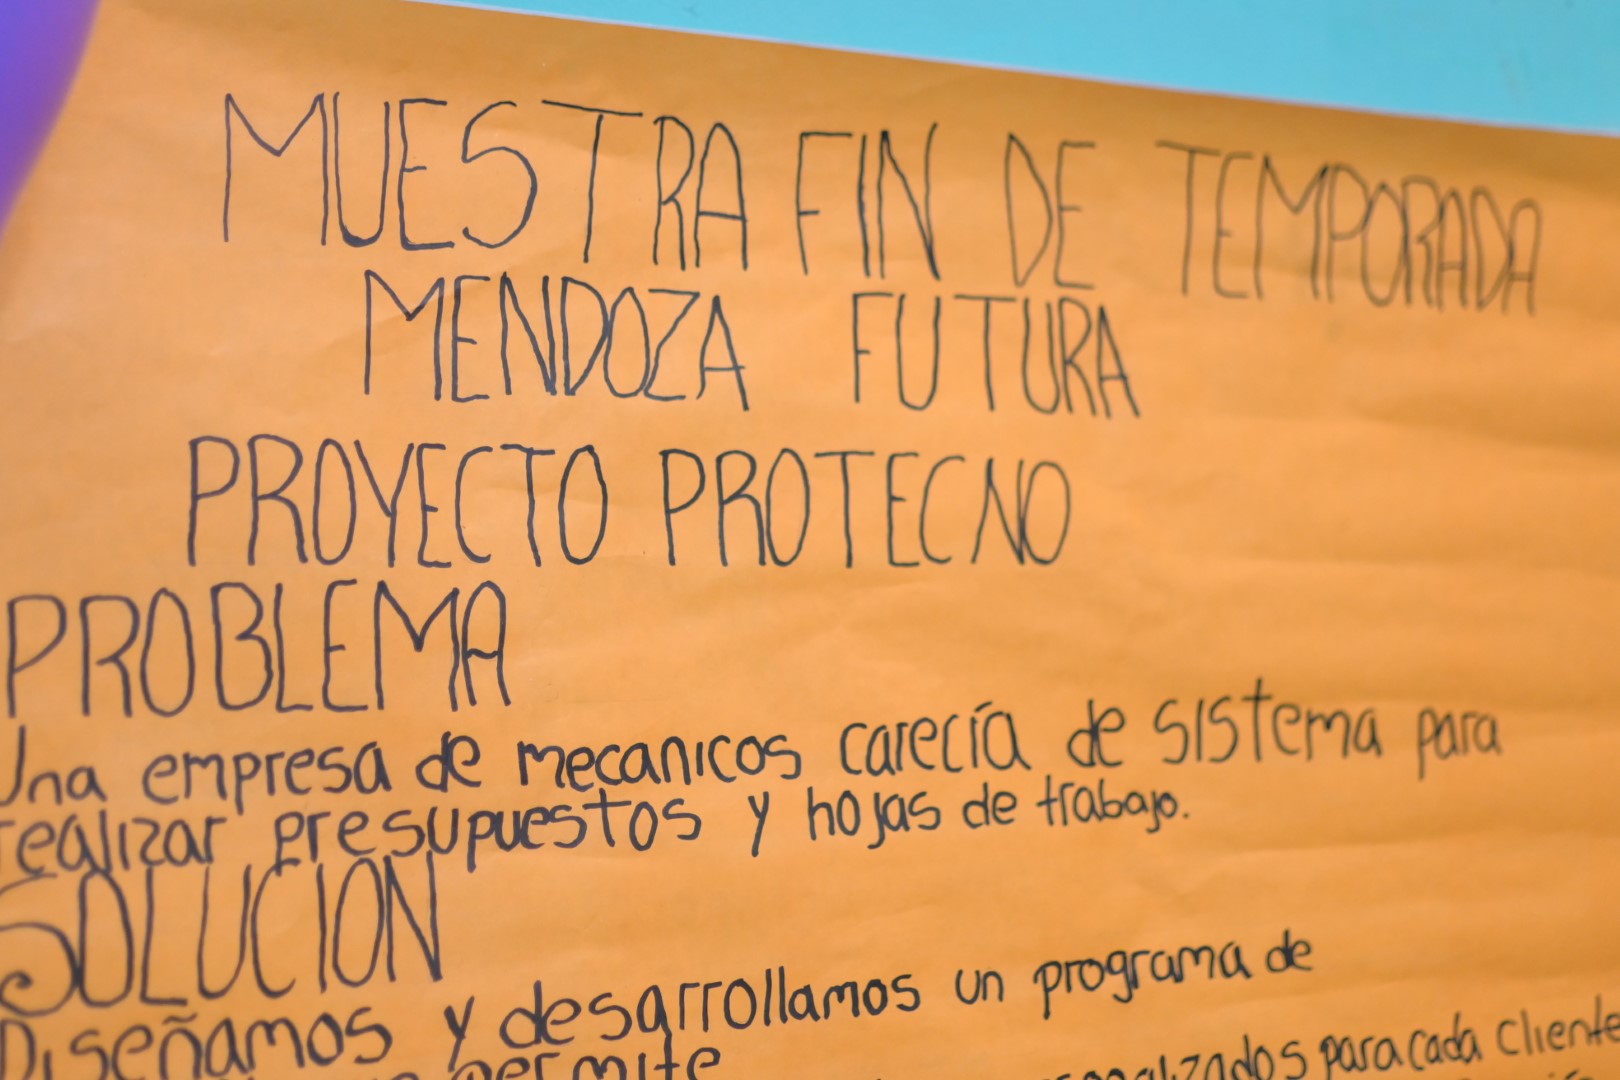 MUESTRA FIN DE TEMPORADA
MENDOZA FUTURA
PROYECTO PROTECNO
PROBLEMA
Una empresa de mecanicos carecía de sistema para
realizar presupuestos y hojas de trabajo.
SOLUCION
Diseñamos y desarrollamos un programa de
permite para cada cliente